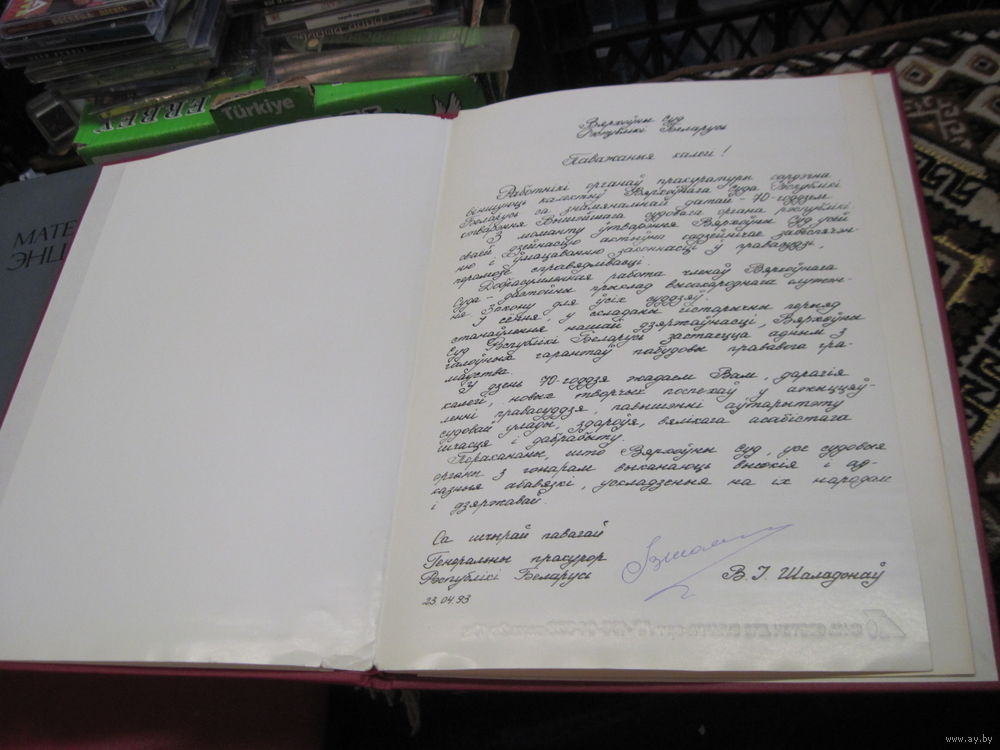 Türkiye
МАТЕ
ЭНЦ
Вярхоўны Суд
Рэспублікі Беларусь
Паважаныя калегі!
Работнікі органаў пракуратуры сардэчна
віншуюць калектыў Вярхоўнага Суда Рэспублікі
Беларусь са знамянальнай датай - 70-годдзем
стварэння Вышэйшага судовага органа рэспублікі.
З моманту ўтварэння Вярхоўны Суд усёй
сваёй дзейнасцю актыўна садзейнічае забеспячэн-
ню і ўмацаванню законнасці ў правасуддзі,
перамозе справядлівасці.
Добрасумленная работа членаў Вярхоўнага
Суда - дастойны прыклад высакароднага служэн-
ня Закону для ўсіх суддзяў.
І сёння, у складаны гістарычны перыяд
станаўлення нашай дзяржаўнасці, Вярхоўны
Суд Рэспублікі Беларусь застаецца адным з
галоўных гарантаў пабудовы прававога гра-
мадства.
У дзень 70-годдзя жадаем Вам, дарагія
калегі, новых творчых поспехаў у ажыццяў-
ленні правасуддзя, павышэнні аўтарытэту
судовай улады, здароўя, вялікага асабістага
шчасця і дабрабыту.
Перакананы, што Вярхоўны Суд, усе судовыя
органы з гонарам выканаюць высокія і ад-
казныя абавязкі, ускладзеныя на іх народам
і дзяржавай.
Са шчырай павагай
Генеральны пракурор
Рэспублікі Беларусь
В.І. Шаладонаў
23.04.93
www.ay.by